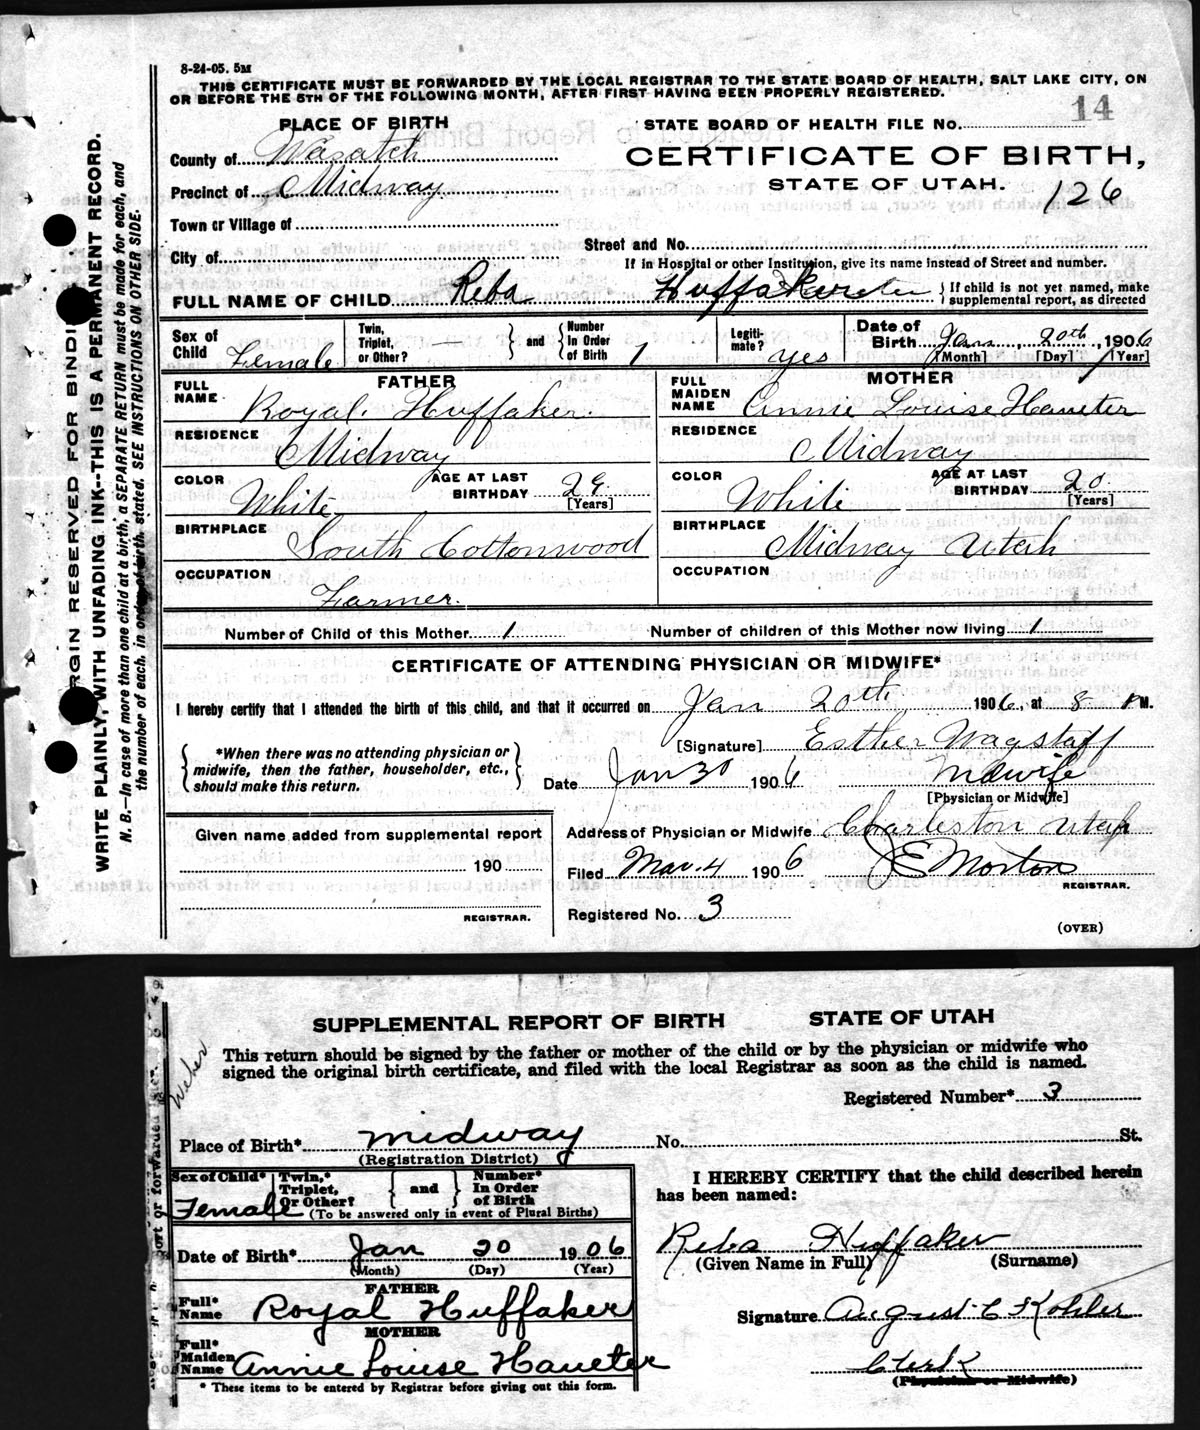 8-24-05. 5M
THIS CERTIFICATE MUST BE FORWARDED BY THE LOCAL REGISTRAR TO THE STATE BOARD OF HEALTH, SALT LAKE CITY, ON
OR BEFORE THE 5TH OF THE FOLLOWING MONTH, AFTER FIRST HAVING BEEN PROPERLY REGISTERED.
PLACE OF BIRTH
STATE BOARD OF HEALTH FILE No. 14
County of Wasatch
CERTIFICATE OF BIRTH,
Precinct of Midway
STATE OF UTAH.
126
Town or Village of
Street and No.
City of
If in Hospital or other Institution, give its name instead of Street and number.
FULL NAME OF CHILD Reba Huffaker
If child is not yet named, make
supplemental report, as directed
Sex of Child Female
Twin, Triplet, or Other? —
and
Number In Order of Birth 1
Legiti-mate? yes
Date of Birth Jan 20th, 1906
[Month] [Day] [Year]
FATHER
FULL NAME Royal Huffaker.
RESIDENCE Midway
COLOR White
AGE AT LAST BIRTHDAY 29 [Years]
BIRTHPLACE South Cottonwood
OCCUPATION Farmer.
MOTHER
FULL MAIDEN NAME Annie Louise Haueter
RESIDENCE Midway
COLOR White
AGE AT LAST BIRTHDAY 20 [Years]
BIRTHPLACE Midway Utah
OCCUPATION
Number of Child of this Mother 1
Number of children of this Mother now living 1
CERTIFICATE OF ATTENDING PHYSICIAN OR MIDWIFE*
I hereby certify that I attended the birth of this child, and that it occurred on Jan 20th 1906, at 8 PM.
*When there was no attending physician or
midwife, then the father, householder, etc.,
should make this return.
[Signature] Esther Wagstaff
Date Jan 30 1906 Midwife
[Physician or Midwife]
Given name added from supplemental report
190
REGISTRAR.
Address of Physician or Midwife Charleston Utah
Filed Mar. 4 1906 J E Morton
REGISTRAR.
Registered No. 3
(OVER)
RGIN RESERVED FOR BINDI
WRITE PLAINLY, WITH UNFADING INK--THIS IS A PERMANENT RECORD.
N. B.—In case of more than one child at a birth, a SEPARATE RETURN must be made for each, and
the number of each, in order of birth, stated. SEE INSTRUCTIONS ON OTHER SIDE.
SUPPLEMENTAL REPORT OF BIRTH STATE OF UTAH
This return should be signed by the father or mother of the child or by the physician or midwife who
signed the original birth certificate, and filed with the local Registrar as soon as the child is named.
Weber
Registered Number* 3
Place of Birth* Midway No. St.
(Registration District)
Sex of Child* Female
Twin,* Triplet, Or Other?
and
Number* In Order of Birth
(To be answered only in event of Plural Births)
Date of Birth* Jan 20 1906
(Month) (Day) (Year)
FATHER
Full* Name Royal Huffaker
MOTHER
Full* Maiden Name Annie Louise Haueter
* These items to be entered by Registrar before giving out this form.
I HEREBY CERTIFY that the child described herein
has been named:
Reba Huffaker
(Given Name in Full) (Surname)
Signature August C Kohler
Clerk
(Physician or Midwife)